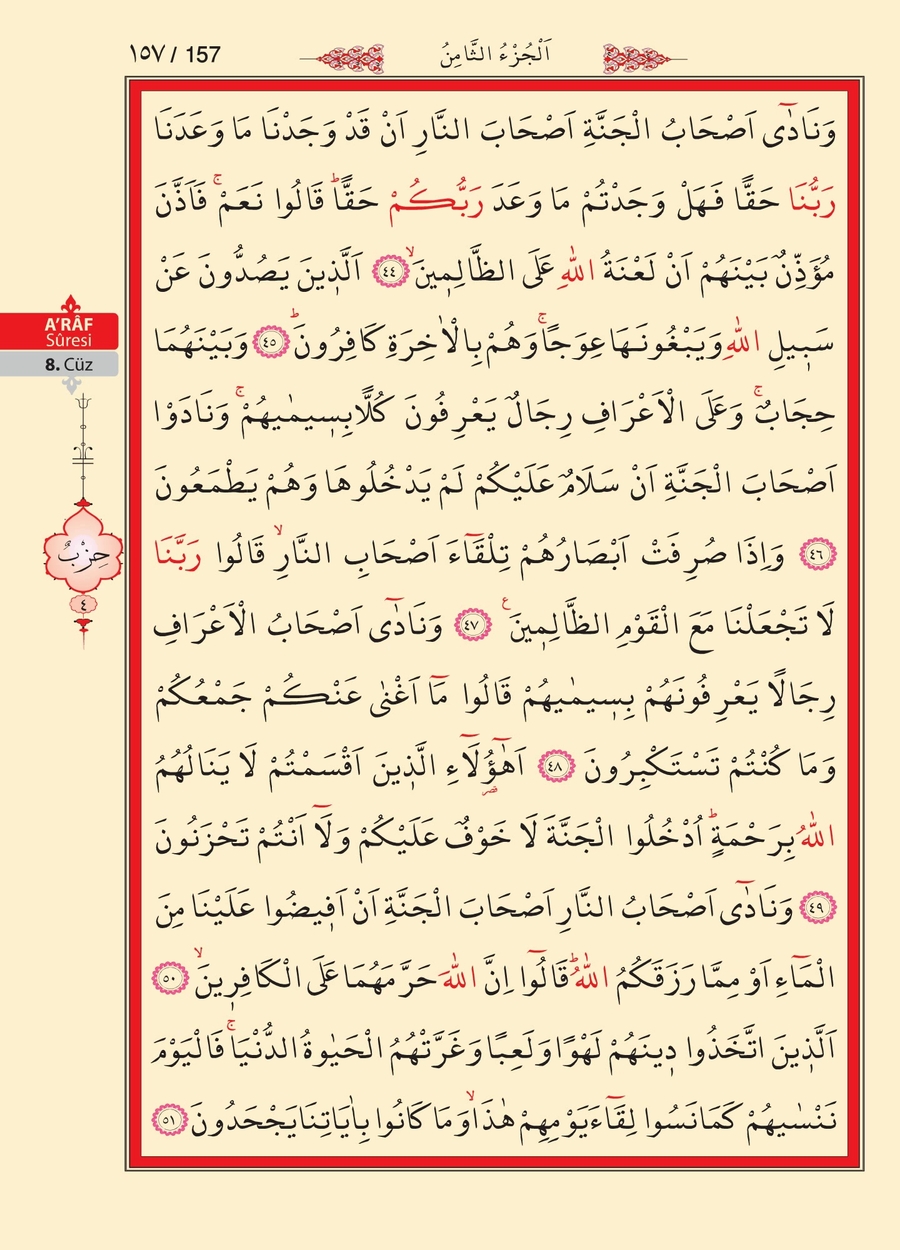 ١٥٧ / 157
اَلْجُزْءُ الثَّامِنُ
وَنَادٰٓى اَصْحَابُ الْجَنَّةِ اَصْحَابَ النَّارِ اَنْ قَدْ وَجَدْنَا مَا وَعَدَنَا
رَبُّنَا حَقًّا فَهَلْ وَجَدْتُمْ مَا وَعَدَ رَبُّكُمْ حَقًّاۜ قَالُوا نَعَمْۚ فَاَذَّنَ
مُؤَذِّنٌ بَيْنَهُمْ اَنْ لَعْنَةُ اللّٰهِ عَلَى الظَّالِمٖينَۙ ﴿٤٤﴾ اَلَّذٖينَ يَصُدُّونَ عَنْ
سَبٖيلِ اللّٰهِ وَيَبْغُونَهَا عِوَجًاۚ وَهُمْ بِالْاٰخِرَةِ كَافِرُونَۜ ﴿٤٥﴾ وَبَيْنَهُمَا
حِجَابٌۚ وَعَلَى الْاَعْرَافِ رِجَالٌ يَعْرِفُونَ كُلًّا بِسٖيمٰيهُمْۚ وَنَادَوْا
اَصْحَابَ الْجَنَّةِ اَنْ سَلَامٌ عَلَيْكُمْ لَمْ يَدْخُلُوهَا وَهُمْ يَطْمَعُونَ
﴿٤٦﴾ وَاِذَا صُرِفَتْ اَبْصَارُهُمْ تِلْقَٓاءَ اَصْحَابِ النَّارِۙ قَالُوا رَبَّنَا
لَا تَجْعَلْنَا مَعَ الْقَوْمِ الظَّالِمٖينَ ع ﴿٤٧﴾ وَنَادٰٓى اَصْحَابُ الْاَعْرَافِ
رِجَالًا يَعْرِفُونَهُمْ بِسٖيمٰيهُمْ قَالُوا مَٓا اَغْنٰى عَنْكُمْ جَمْعُكُمْ
وَمَا كُنْتُمْ تَسْتَكْبِرُونَ ﴿٤٨﴾ اَهٰٓؤُ۬لَٓاءِ الَّذٖينَ اَقْسَمْتُمْ لَا يَنَالُهُمُ
اللّٰهُ بِرَحْمَةٍۜ اُدْخُلُوا الْجَنَّةَ لَا خَوْفٌ عَلَيْكُمْ وَلَٓا اَنْتُمْ تَحْزَنُونَ
﴿٤٩﴾ وَنَادٰٓى اَصْحَابُ النَّارِ اَصْحَابَ الْجَنَّةِ اَنْ اَفٖيضُوا عَلَيْنَا مِنَ
الْمَٓاءِ اَوْ مِمَّا رَزَقَكُمُ اللّٰهُۜ قَالُٓوا اِنَّ اللّٰهَ حَرَّمَهُمَا عَلَى الْكَافِرٖينَۙ ﴿٥٠﴾
اَلَّذٖينَ اتَّخَذُوا دٖينَهُمْ لَهْوًا وَلَعِبًا وَغَرَّتْهُمُ الْحَيٰوةُ الدُّنْيَاۚ فَالْيَوْمَ
نَنْسٰيهُمْ كَمَا نَسُوا لِقَٓاءَ يَوْمِهِمْ هٰذَاۙ وَمَا كَانُوا بِاٰيَاتِنَا يَجْحَدُونَ ﴿٥١﴾
A'RÂF
Sûresi
8. Cüz
حِزْبٌ
٤